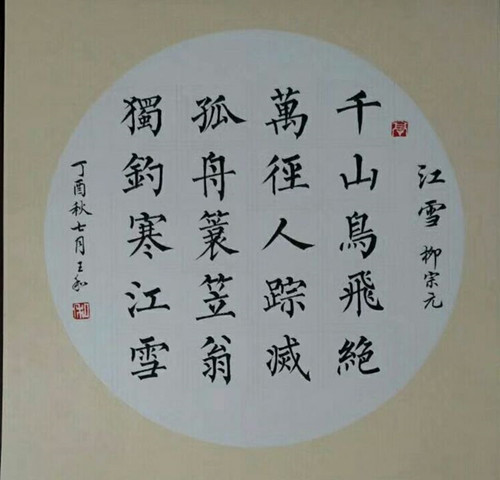 江雪 柳宗元
千山鳥飛絶
萬徑人踪滅
孤舟蓑笠翁
獨釣寒江雪
丁酉秋七月王和